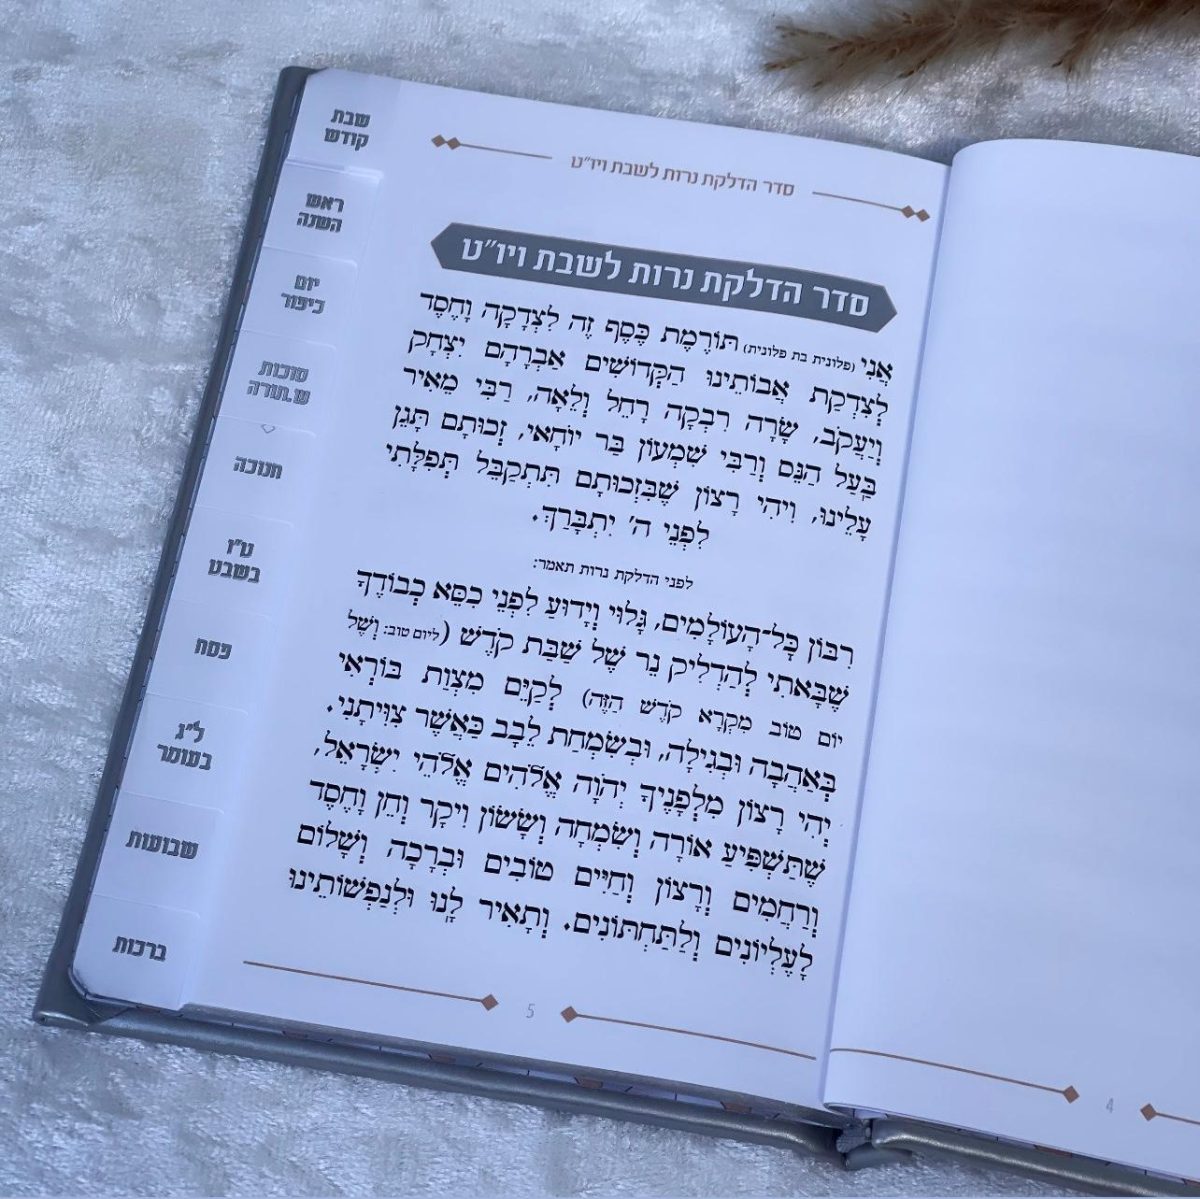 סדר הדלקת נרות לשבת ויו״ט
סדר הדלקת נרות לשבת ויו״ט
אֲנִי (פלונית בת פלונית) תּוֹרֶמֶת כֶּסֶף זֶה לִצְדָקָה וָחֶסֶד
לְצִדְקַת אֲבוֹתֵינוּ הַקְּדוֹשִׁים אַבְרָהָם יִצְחָק
וְיַעֲקֹב, שָׂרָה רִבְקָה רָחֵל וְלֵאָה, רַבִּי מֵאִיר
בַּעַל הַנֵּס וְרַבִּי שִׁמְעוֹן בַּר יוֹחָאי, זְכוּתָם תָּגֵן
עָלֵינוּ, וִיהִי רָצוֹן שֶׁבִּזְכוּתָם תִּתְקַבֵּל תְּפִלָּתִי
לִפְנֵי ה׳ יִתְבָּרַךְ.
לפני הדלקת נרות תאמר:
רִבּוֹן כָּל־הָעוֹלָמִים, גָּלוּי וְיָדוּעַ לִפְנֵי כִסֵּא כְבוֹדֶךָ
שֶׁבָּאתִי לְהַדְלִיק נֵר שֶׁל שַׁבַּת קֹדֶשׁ (ליום טוב: וְשֶׁל
יוֹם טוֹב מִקְרָא קֹדֶשׁ הַזֶּה) לְקַיֵּם מִצְוַת בּוֹרְאִי
בְּאַהֲבָה וּבְגִילָה, וּבְשִׂמְחַת לֵבָב כַּאֲשֶׁר צִוִּיתָנִי.
יְהִי רָצוֹן מִלְּפָנֶיךָ יְהֹוָה אֱלֹהִים אֱלֹהֵי יִשְׂרָאֵל,
שֶׁתַּשְׁפִּיעַ אוֹרָה וְשִׂמְחָה וְשָׂשׂוֹן וִיקָר וְחֵן וָחֶסֶד
וְרַחֲמִים וְרָצוֹן וְחַיִּים טוֹבִים וּבְרָכָה וְשָׁלוֹם
לָעֶלְיוֹנִים וְלַתַּחְתּוֹנִים. וְתָאִיר לָנוּ וּלְנַפְשׁוֹתֵינוּ
5
4
שבת
קודש
ראש
השנה
יום
כיפור
סוכות
ש.תורה
חנוכה
ט״ו
בשבט
פסח
ל״ג
בעומר
שבועות
ברכות